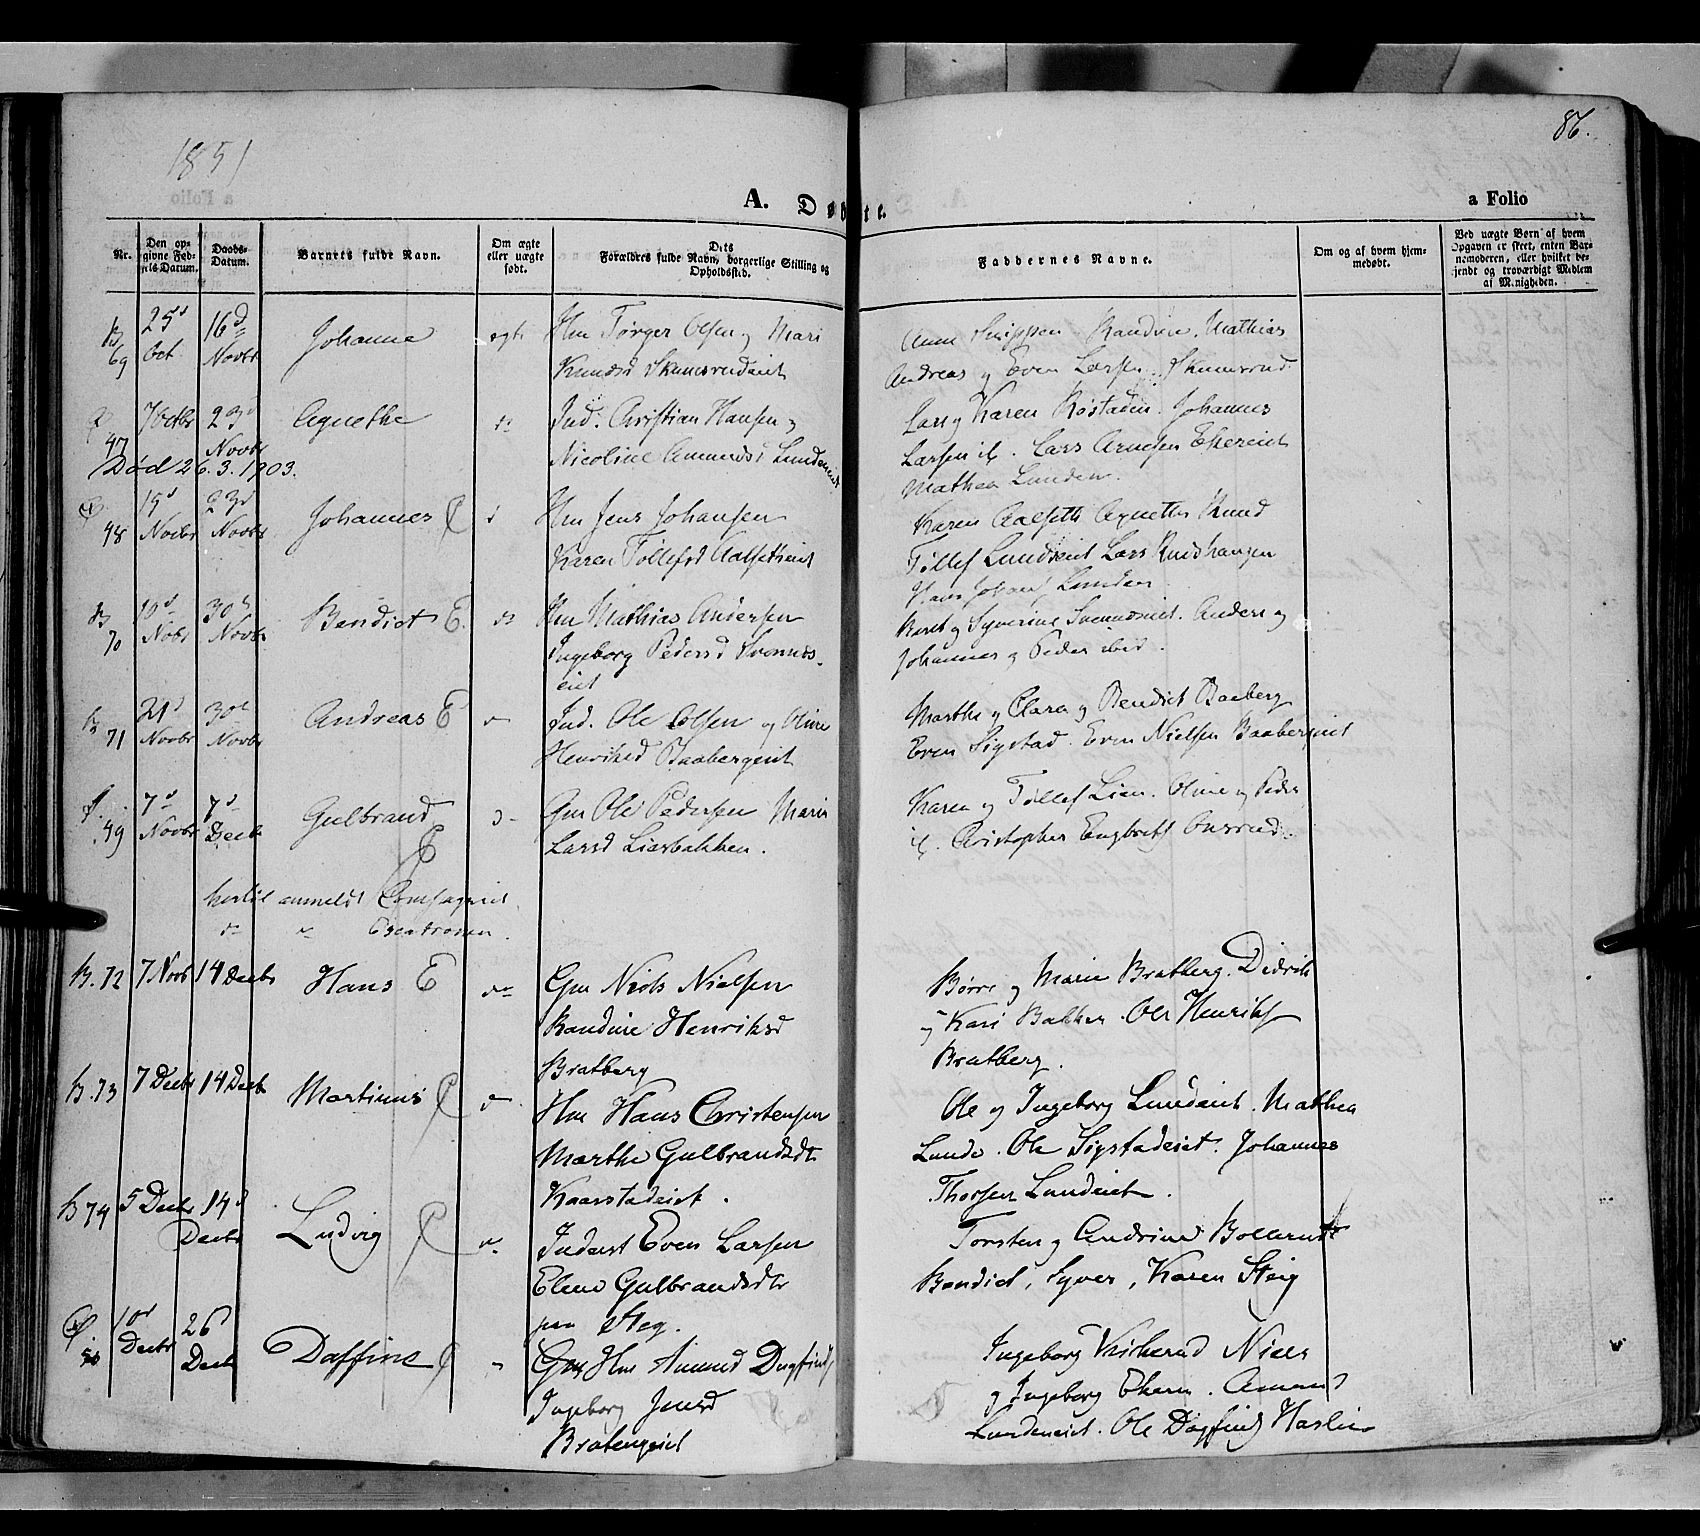 1851
86.
A. Døbte.
a Folio
Nr.
Den opgivne Fødsels Datum.
Daabs-Datum.
Barnets fulde Navn.
Om ægte eller uægte født.
Dets Forældres fulde Navn, borgerlige Stilling og Opholdssted.
Faddernes Navne.
Om og af hvem hjemmedøbt.
Ved uægte Børn af hvem Opgaven er skeet, enten Barnemoderen, eller hvilket bejendt og troværdigt Medlem af Menigheden.
B 69 25d Oct 16d Novbr Johanne ægte Hm Torger Olsen og Mari
Knudsd
Anne Randine. Mathias
Andreas og Even Larsen
47 7 Octbr 23d Novbr Agnethe Ind. Christian Hansen og
Nicoline Amunds Lundeneiet
Lars og Karen Røstaden. Johannes
Larsen Lars Arnesen
Mathea Lunden.
Død 26.3.1903.
48 15d Novbr 23d Novbr Johannes Hm Jens Johansen
Karen Tollefsd Aalsetheiet
Karen Aalseth Agnethe Knud
Tollef Lundeiet Lars
Hans Lunden
B 70 19d Novbr 30d Novbr Bendict E. Hm Mathias Andersen
Ingeborg Pedersd Svennes-
eiet
Beret og Syverine Svenneseiet. Anders og
Johannes og Peder ibid.
B 71 21d Novbr 30d Novbr Andreas E Ind. Ole Olsen og Oline
Henriksd Baabergeiet
Marthe og Clara og Bendict Baaberg
Even Sigstad. Even Nielsen Baabergeiet
49 7d Novbr 7d Decbr Gulbrand Gm Ole Pedersen Marie
Larsd Liesbakken.
Karen og Tollef Lien. Oline og Peder
Christopher Engbrets Onsrud.
hertil anmeldt Compagniet
Escatronen.
B. 72 7 Novb 14 Decbr Hans E Gm Niels Nielsen
Randine Henriksd
Bratberg
Børre og Marie Bratberg. Didrik
og Kari Bakken. Ole Henriks
Bratberg.
B. 73 7 Decbr 14 Decbr Martinus Hm Hans Christensen
Marthe Gulbrandsdtr
Kaarstadeiet.
Ole og Ingeborg Lundeiet. Mathea
Lunde. Ole Sigstadeiet. Johannes
Thorsen Lundeiet.
B 74 5 Decbr 14d Decbr Ludvig Inderst Even Larsen
Elene Gulbrandsdtr
paa Steg.
Torsten og Andrine
Bendict, Syver, Karen Steig
50 10d Decbr 26 Decb Daffine Hm Amund Dagfinds
Ingeborg Jensd
Bratengeiet
Ingeborg Niels
og Ingeborg Ekern. Amund
Lundeneiet. Ole Dagfinds Haslien